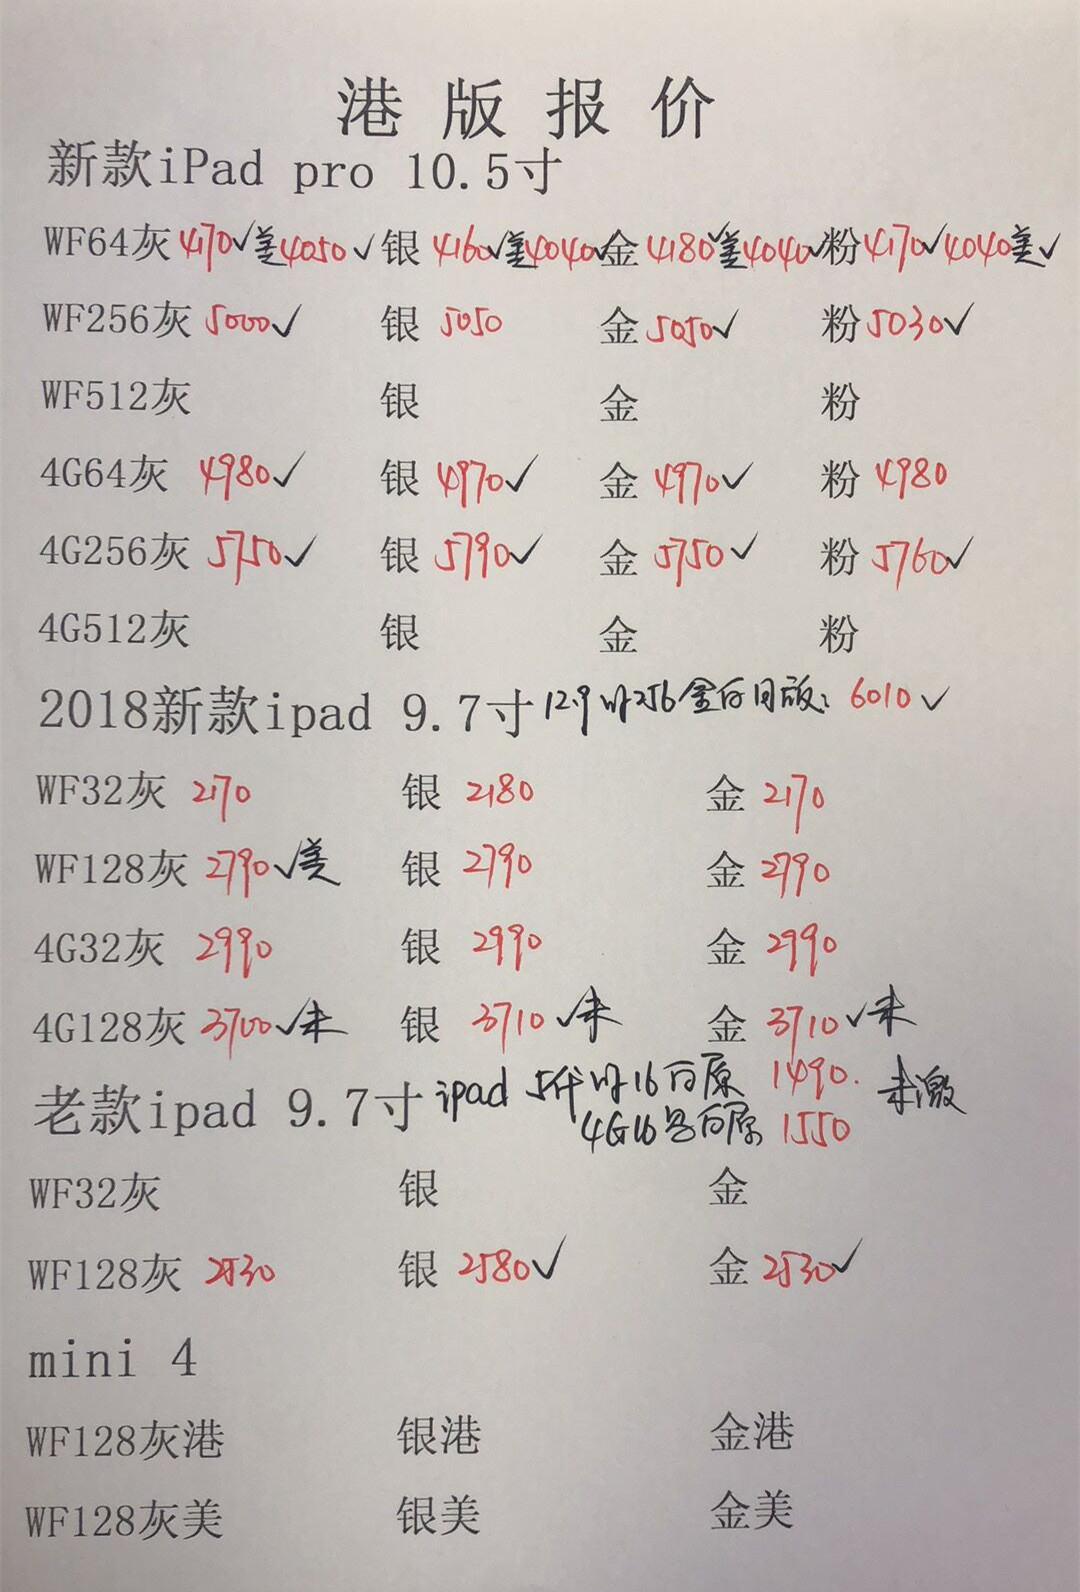 港版报价
新款iPad pro 10.5寸
WF64灰 4170✓美4050✓ 银 4160✓美4040✓ 金 4180✓美4040✓ 粉 4170✓4040美✓
WF256灰 5000✓ 银 5050 金 5050✓ 粉 5030✓
WF512灰 银 金 粉
4G64灰 4980✓ 银 4970✓ 金 4970✓ 粉 4980
4G256灰 5750✓ 银 5790✓ 金 5750✓ 粉 5760✓
4G512灰 银 金 粉
2018新款ipad 9.7寸 12.9 256金 版: 6010✓
WF32灰 2170 银 2180 金 2170
WF128灰 2790✓美 银 2790 金 2790
4G32灰 2990 银 2990 金 2990
4G128灰 3700✓未 银 3710✓未 金 3710✓未
老款ipad 9.7寸 ipad 5代 16 原 1490. 未激
4G16 原 1550
WF32灰 银 金
WF128灰 2530 银 2580✓ 金 2530✓
mini 4
WF128灰港 银港 金港
WF128灰美 银美 金美